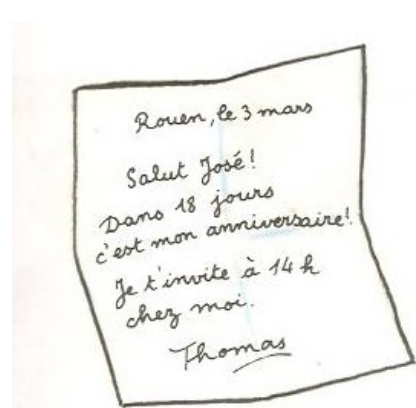 Rouen, le 3 mars
Salut José!
Dans 18 jours
c'est mon anniversaire!
Je t'invite à 14 h
chez moi.
Thomas